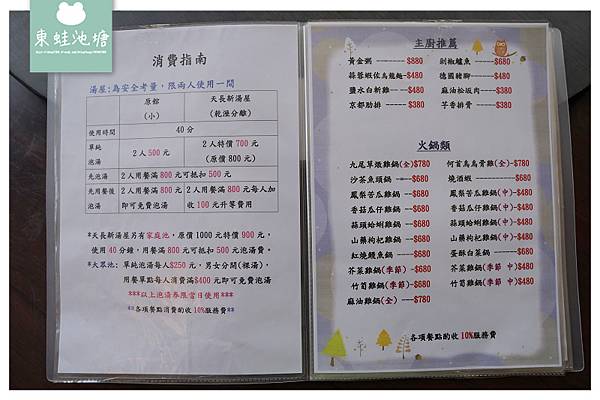 東蛙池塘
消費指南
湯屋:為安全考量,限兩人使用一間
原館
(小)
天長新湯屋
(乾溼分離)
使用時間
40分
單純
泡湯
2人500元
2人特價700元
(原價800元)
先泡湯
2人用餐滿800元可抵扣500元
先用餐後
泡湯
2人用餐滿800元
即可免費泡湯
2人用餐滿800元每人加
收100元升等費用
*天長新湯屋另有家庭池,原價1000元特價900元,
使用40分鐘,用餐滿800元可抵扣500元泡湯費。
*大眾池:單純泡湯每人$250元,男女分開(裸湯),
用餐單點每人消費滿$400元即可免費泡湯
***以上泡湯券限當日使用***
**各項餐點消費酌收10%服務費**
主廚推薦
黃金粥 ------$880
蒜蓉蝦佐烏龍麵-$480
鹽水白新雞 ---$480
京都肋排 -----$380
剁椒鱸魚------$680
德國豬腳------$480
麻油松坂肉----$380
芋香排骨------$380
火鍋類
九尾草燉雞鍋(全)$780
沙茶魚頭鍋 ---$680
鳳梨苦瓜雞鍋---$680
香菇瓜仔雞鍋---$680
蒜頭蛤蜊雞鍋---$680
山藥枸杞雞鍋---$680
紅燒鰻魚鍋-----$680
芥菜雞鍋(季節)-$680
竹筍雞鍋(季節) -$680
麻油雞鍋(全) --$780
何首烏烏骨雞(全)-$780
燒酒蝦 --------$680
鳳梨苦瓜雞鍋(中)-$480
香菇瓜仔雞鍋(中)-$480
蒜頭蛤蜊雞鍋(中)-$480
山藥枸杞雞鍋(中)-$480
蛋酥白菜鍋 ------$580
芥菜雞鍋(季節 中)$480
竹筍雞鍋(季節 中)$480
各項餐點酌收10%服務費